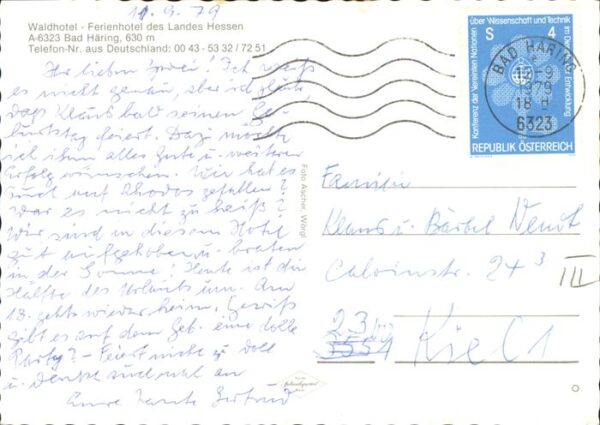 11.9.79
Waldhotel - Ferienhotel des Landes Hessen
A-6323 Bad Häring, 630 m
Telefon-Nr. aus Deutschland: 00 43 - 53 32 / 72 51
Ihr lieben Zwei! Ich weiß
es nicht genau, aber ich glaube,
dass Klaus bald seinen Ge-
burtstag feiert. Dazu möchte
ich ihm alles Gute u. weiterhin
Erfolg wünschen. Wie hat es
Euch auf Rhodos gefallen?
War es nicht zu heiß?
Wir sind in diesem Hotel
gut aufgehoben u. braten
in der Sonne! Heute ist die
Hälfte des Urlaubs um. Am
18. gehts wieder heim. Gewiß
gibt es auf dem Geb. eine tolle
Party? - Feiert nicht zu doll
u. denkt mal an
Eure Tante Gertrud
Foto Ascher, Wörgl
Konferenz der Vereinten Nationen
über Wissenschaft und Technik
im Dienste der Entwicklung
S 4
REPUBLIK ÖSTERREICH
BAD HÄRING
12.-9.
1979
18
6323
Familie
Klaus u. Bärbel Wendt
Calvinstr. 24 3
III
23
Kiel 1